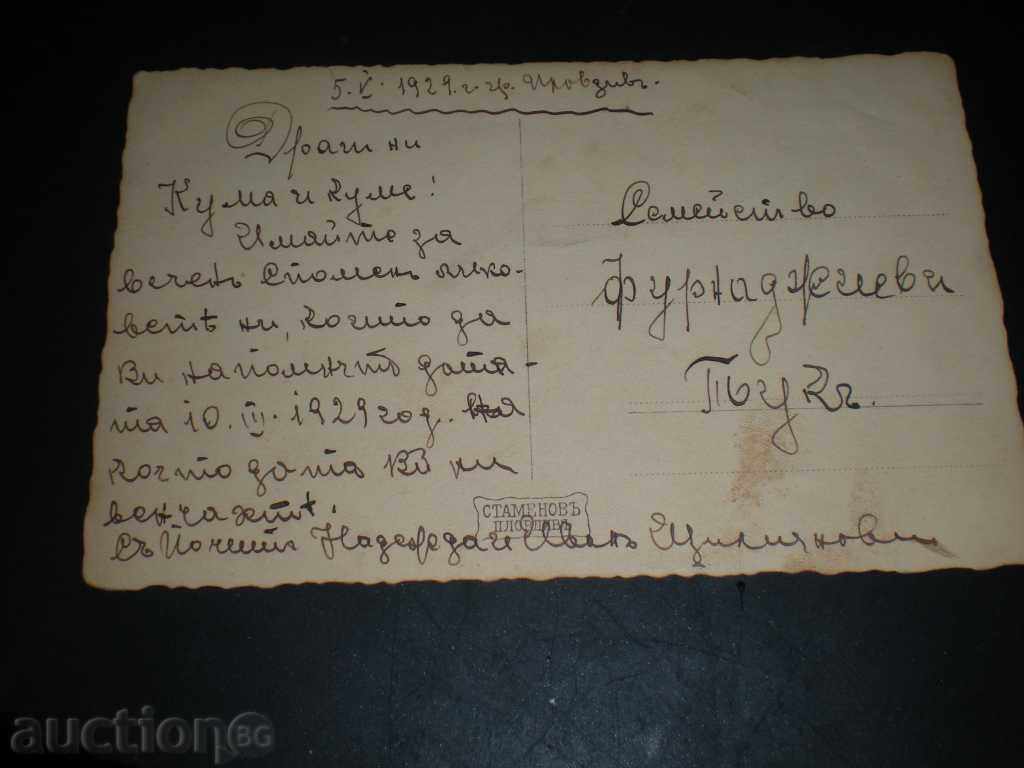 5. V. 1929. г. гр. Пловдивъ.
Драги ни
Кума и куме!
Имайте за
веченъ Споменъ лико-
ветѣ ни, който да
Ви напомнятъ дата-
та 10. III. 1929 год. на
която дата Вй ни
венчахтѣ.
Съ Почитъ Надежда и Иванъ
Семейство
Фурнаджиеви
Тукъ.
СТАМЕНОВЪ
ПЛОВДИВЪ
auction BG